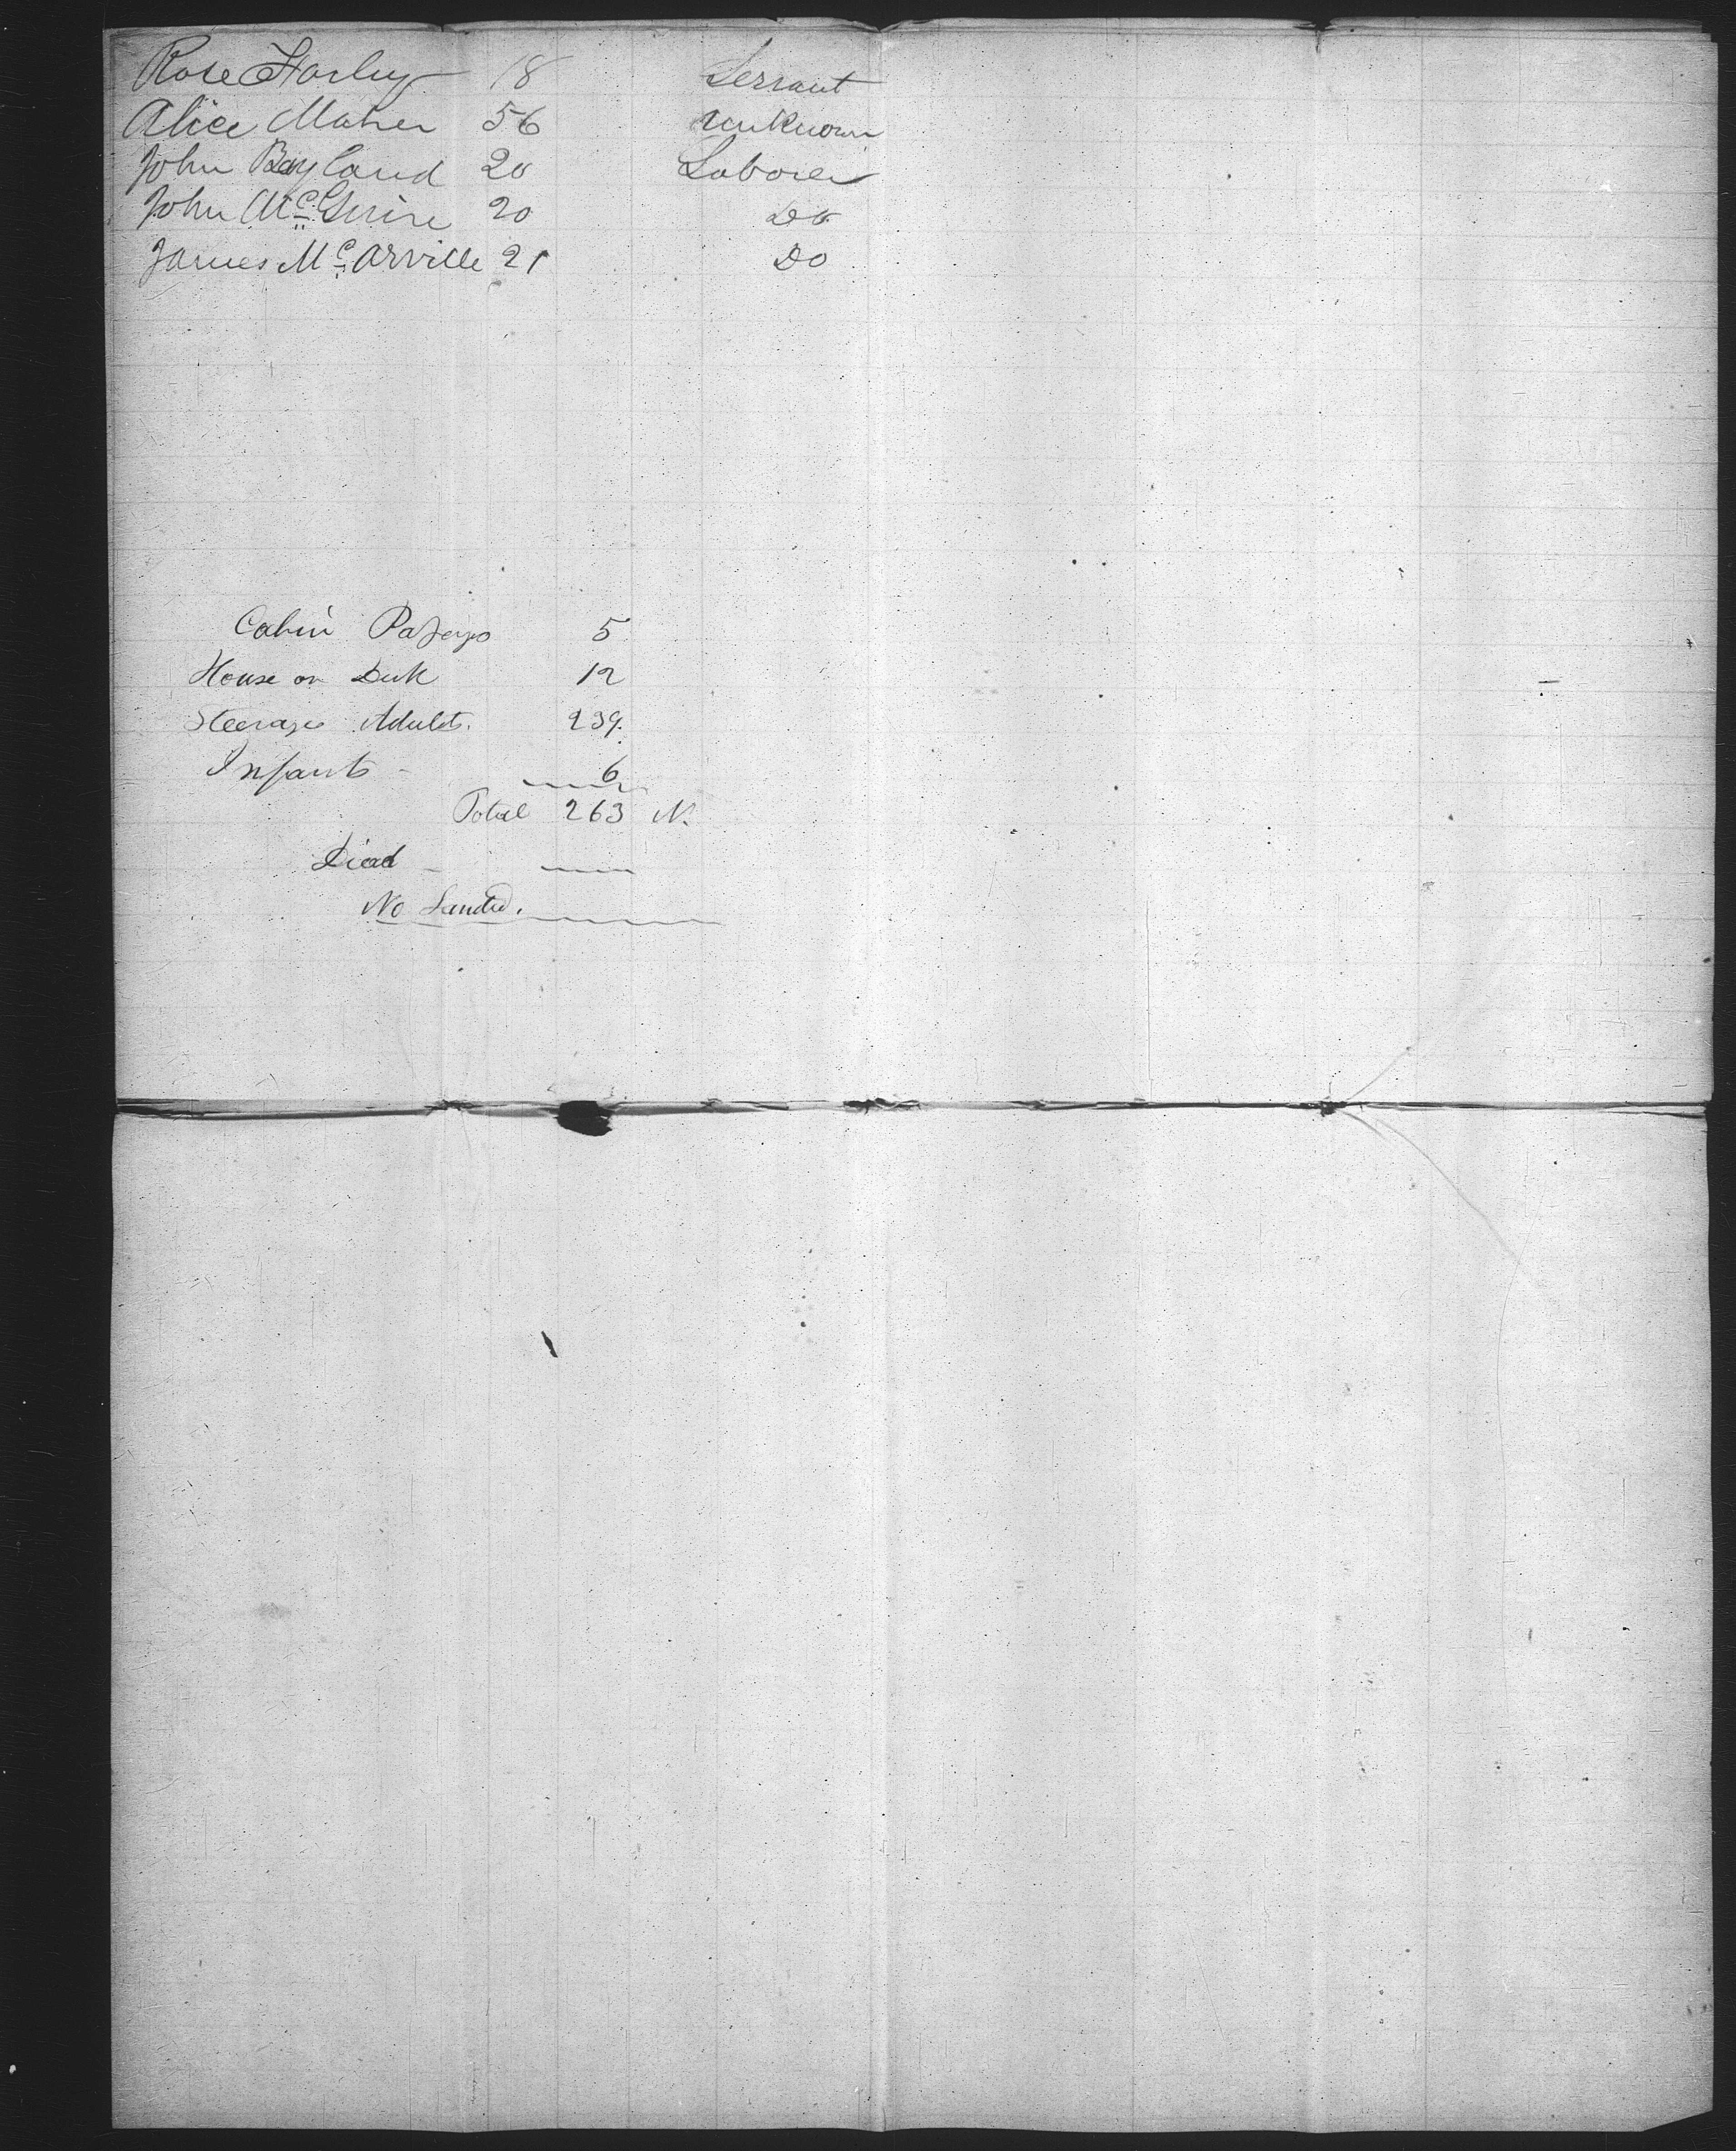 Rose Farley 18 Servant
Alice Maher 56 Unknown
John Bayland 20 Laborer
John McGuire 20 Do
James McArville 21 Do
Cabin Passengs 5
House on Deck 12
Steerage Adults. 239.
Infants - 6
Total 263 N.
Died -
No Landed.